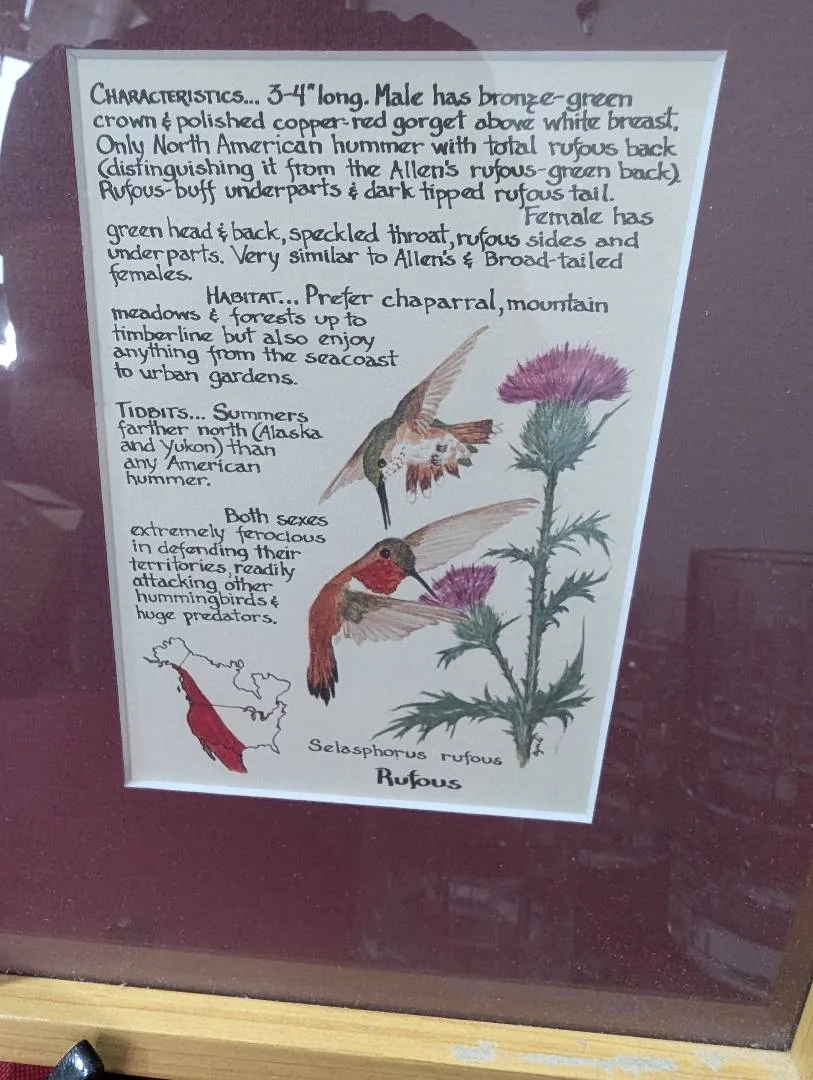 CHARACTERISTICS... 3-4" long. Male has bronze-green
crown & polished copper-red gorget above white breast.
Only North American hummer with total rufous back
(distinguishing it from the Allen's rufous-green back).
Rufous-buff underparts & dark tipped rufous tail.
Female has
green head & back, speckled throat, rufous sides and
underparts. Very similar to Allen's & Broad-tailed
females.
HABITAT... Prefer chaparral, mountain
meadows & forests up to
timberline but also enjoy
anything from the seacoast
to urban gardens.
TIDBITS... Summers
farther north (Alaska
and Yukon) than
any American
hummer.
Both sexes
extremely ferocious
in defending their
territories, readily
attacking other
hummingbirds &
huge predators.
Selasphorus rufous
Rufous